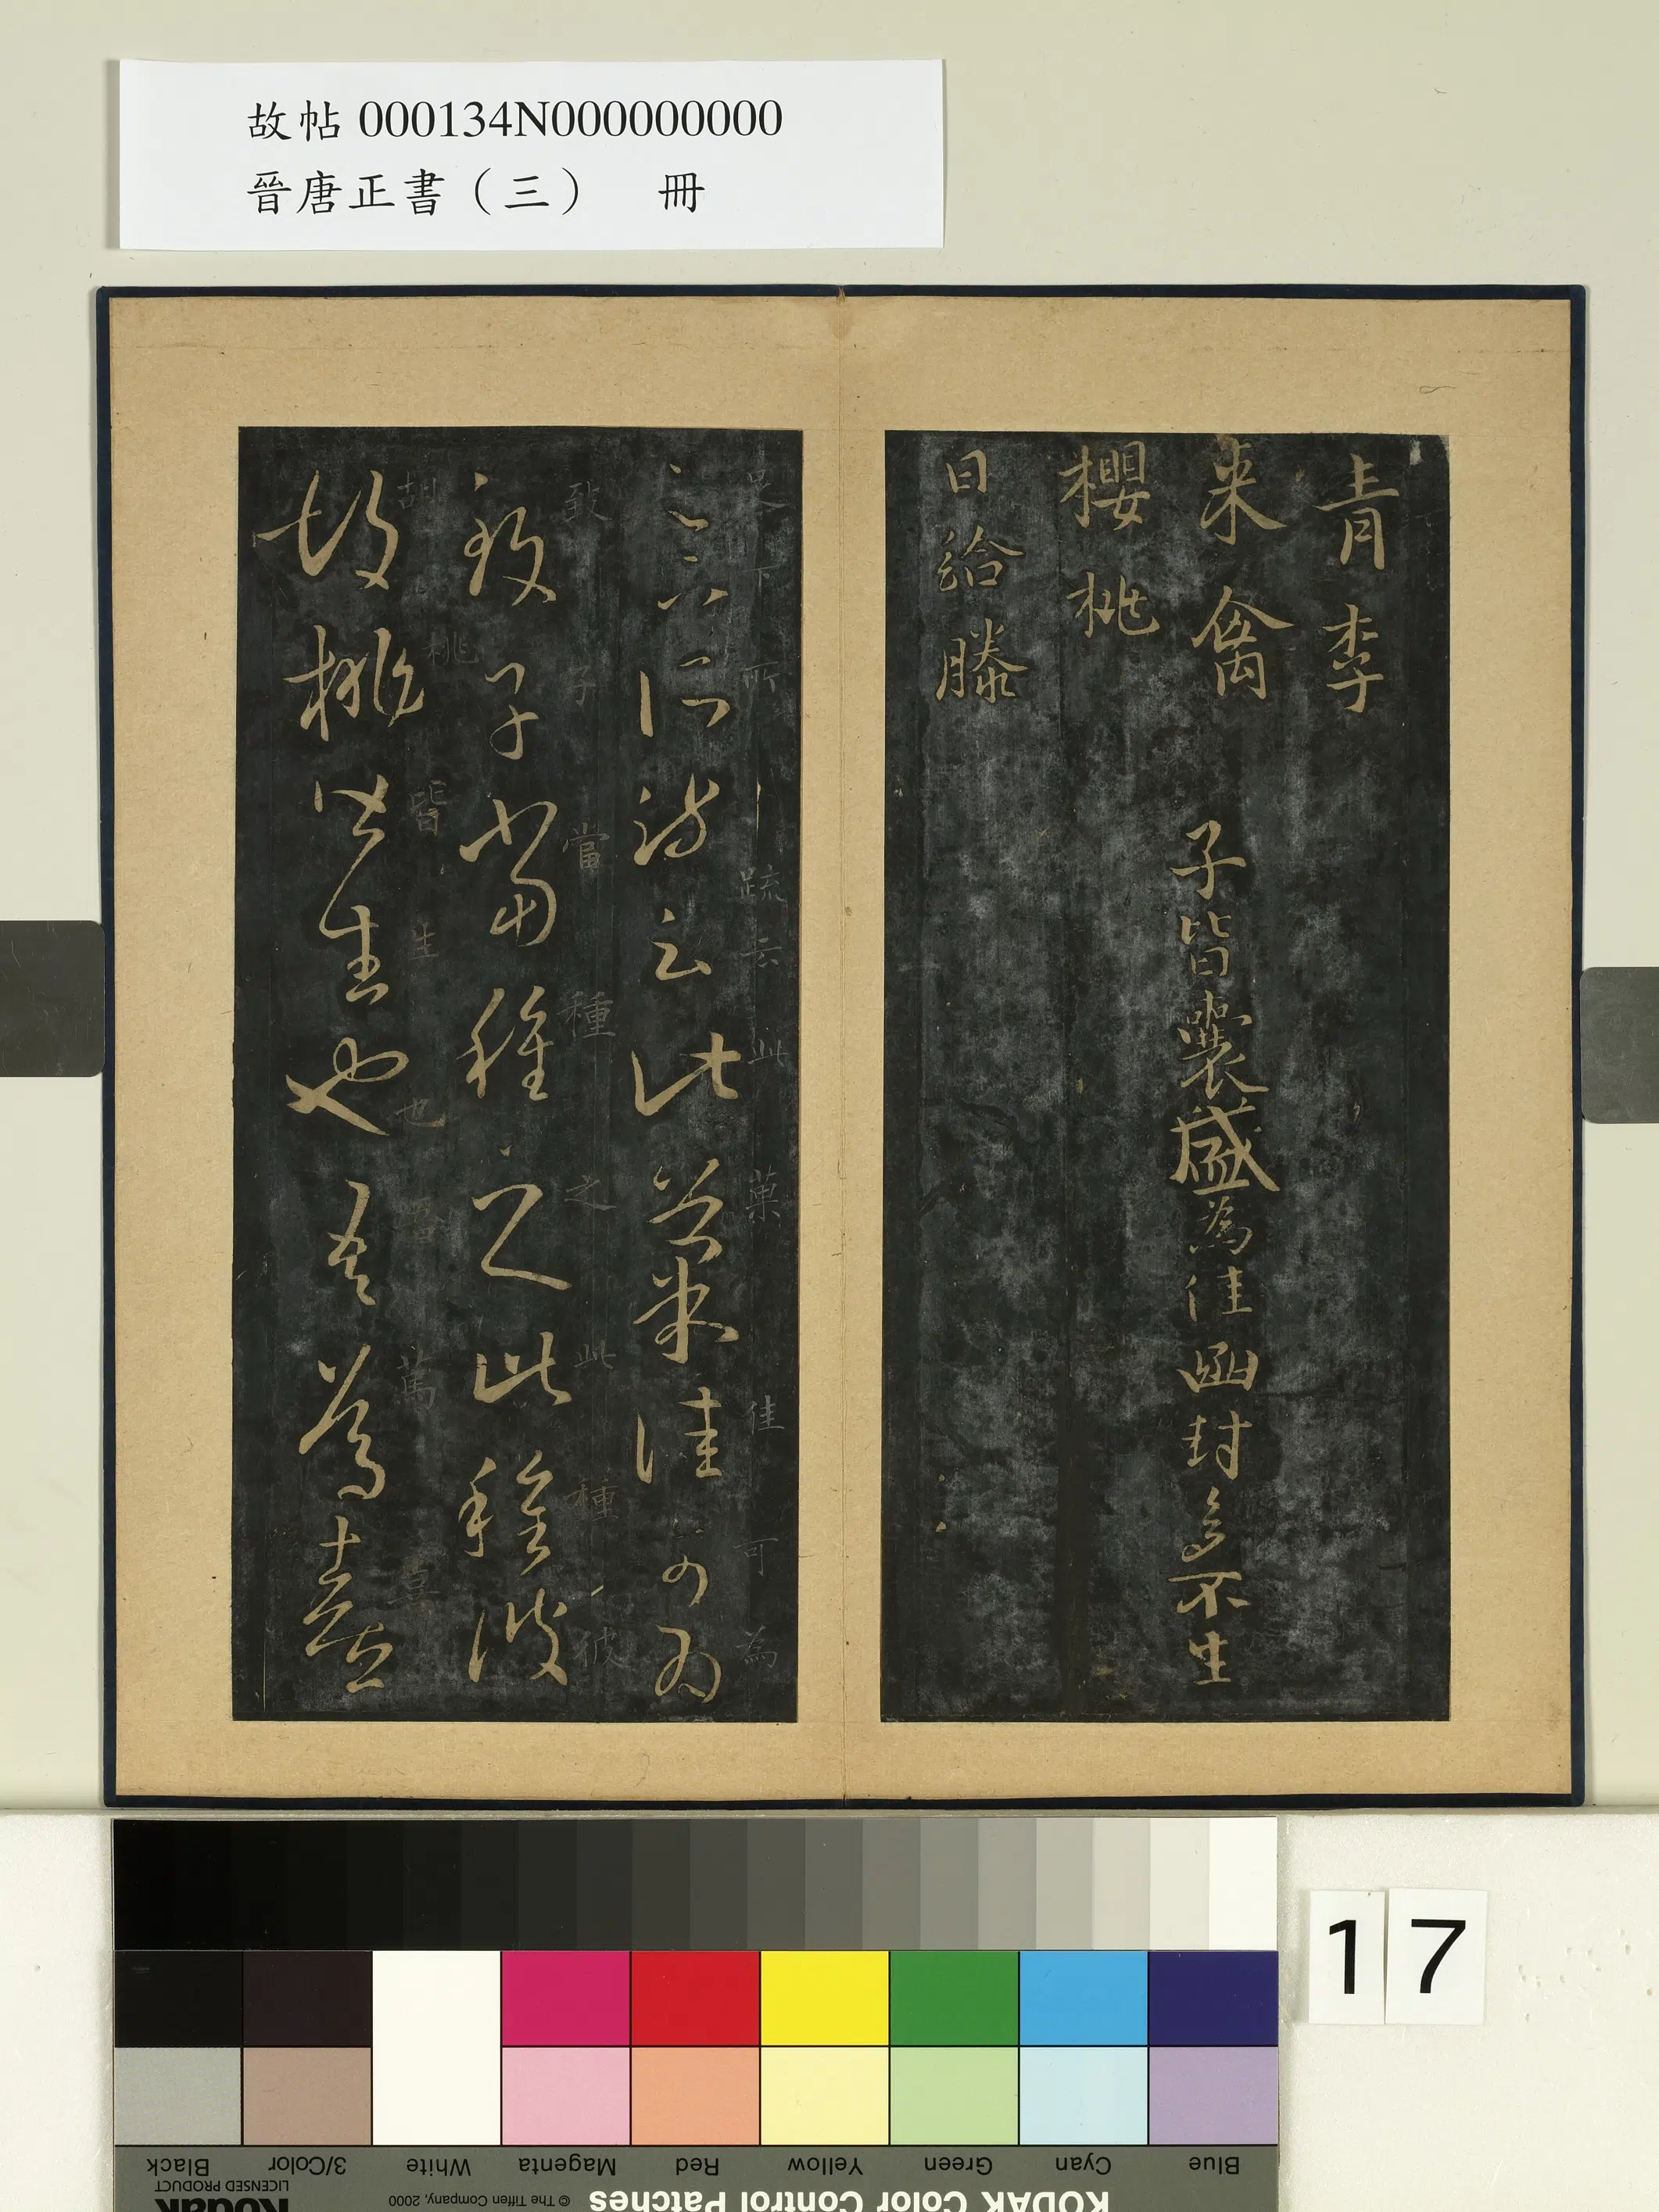 故帖 000134N000000000
晉唐正書（三） 冊
青李
来禽
櫻桃
日給滕
子皆囊盛為佳函封多不生
足下所疏云此菓佳可為
足下所疏云此菓佳可為
致子當種之此種彼
致子當種之此種彼
胡桃皆生也
胡桃皆生也吾篤喜
17
KODAK Color Control Patches
© The Tiffen Company, 2000
Kodak
LICENSED PRODUCT
Blue
Cyan
Green
Yellow
Red
Magenta
White
3/Color
Black